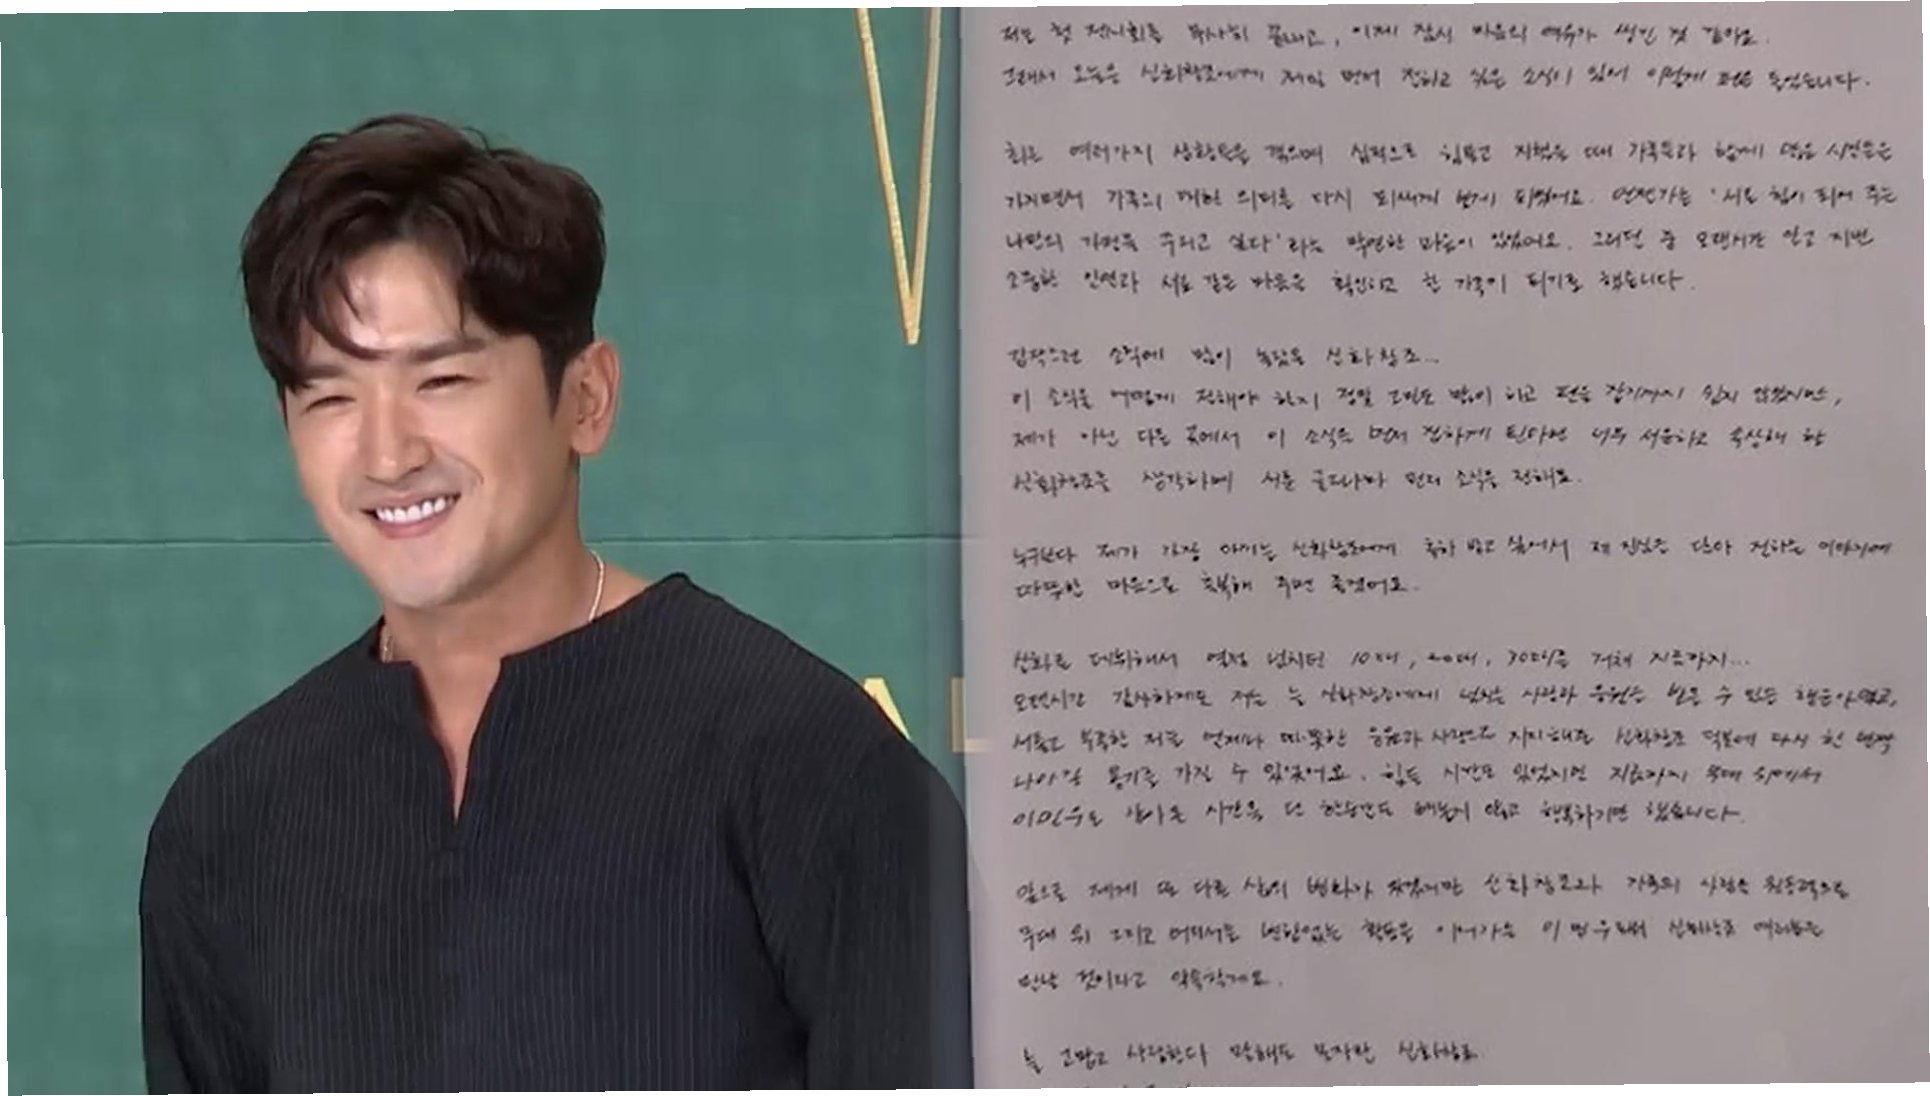 저는 첫 전시회를 무사히 끝내고, 이제 잠시 마음의 여유가 생긴 것 같아요.
그래서 오늘은 신화창조에게 제일 먼저 전하고 싶은 소식이 있어 이렇게 펜을 들었습니다.
최근 여러가지 상황들을 겪으며 심적으로 힘들고 지쳤을 때 가족들과 함께 많은 시간들은
가지면서 가족의 대한 의미를 다시 되새기게 되었어요. 언젠가는 '서로 힘이 되어 주는
나만의 가정을 꾸리고 싶다'라는 막연한 마음이 있었어요. 그러던 중 오랜시간 알고 지낸
소중한 인연과 서로 같은 마음을 확인하고 한 가족이 되기로 했습니다.
갑작스런 소식에 많이 놀랐을 신화창조...
이 소식을 어떻게 전해야 할지 정말 고민도 많이 하고 펜을 잡기까지 쉽지 않았지만,
제가 아닌 다른 곳에서 이 소식을 먼저 전하게 된다면 너무 서운하고 속상해 할
신화창조를 생각하며 서툰 글로나마 먼저 소식을 전해요.
누구보다 제가 가장 아끼는 신화창조에게 축하 받고 싶어서 제 진심을 담아 전하는 이야기에
따뜻한 마음으로 축복해 주면 좋겠어요.
신화로 데뷔해서 열정 넘치던 10대, 20대, 30대를 거쳐 지금까지...
오랜시간 감사하게도 저는 늘 신화창조에게 넘치는 사랑과 응원을 받을 수 있는 행운아였고,
서툴고 부족한 저를 언제나 따뜻한 응원과 사랑으로 지지해준 신화창조 덕분에 다시 한 번
나아갈 용기를 가질 수 있었어요. 힘든 시간도 있었지만 지금까지 무대 위에서
이민우로 살아온 시간을 단 한순간도 빼놓지 않고 행복하기만 했습니다.
앞으로 제게 또 다른 삶의 변화가 있겠지만 신화창조와 가족의 사랑을 원동력으로
무대 위 그리고 어디서든 변함없는 활동을 이어가는 이민우로써 신화창조 여러분을
만날 것이라고 약속할게요.
늘 고맙고 사랑한다 말해도 모자란 신화창조